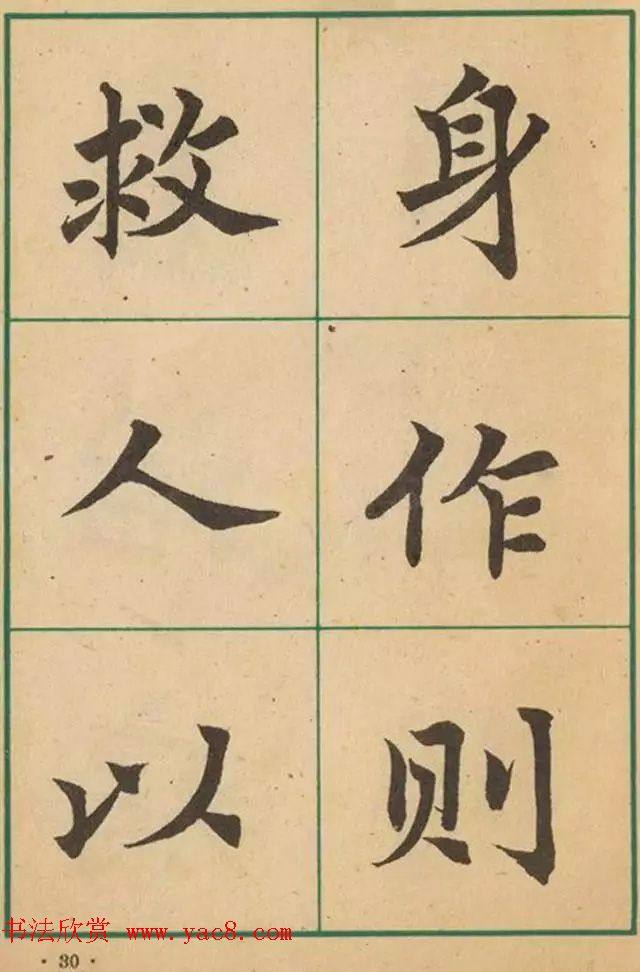 身作则
救人以
书法欣赏 www.yac8.com
·30·